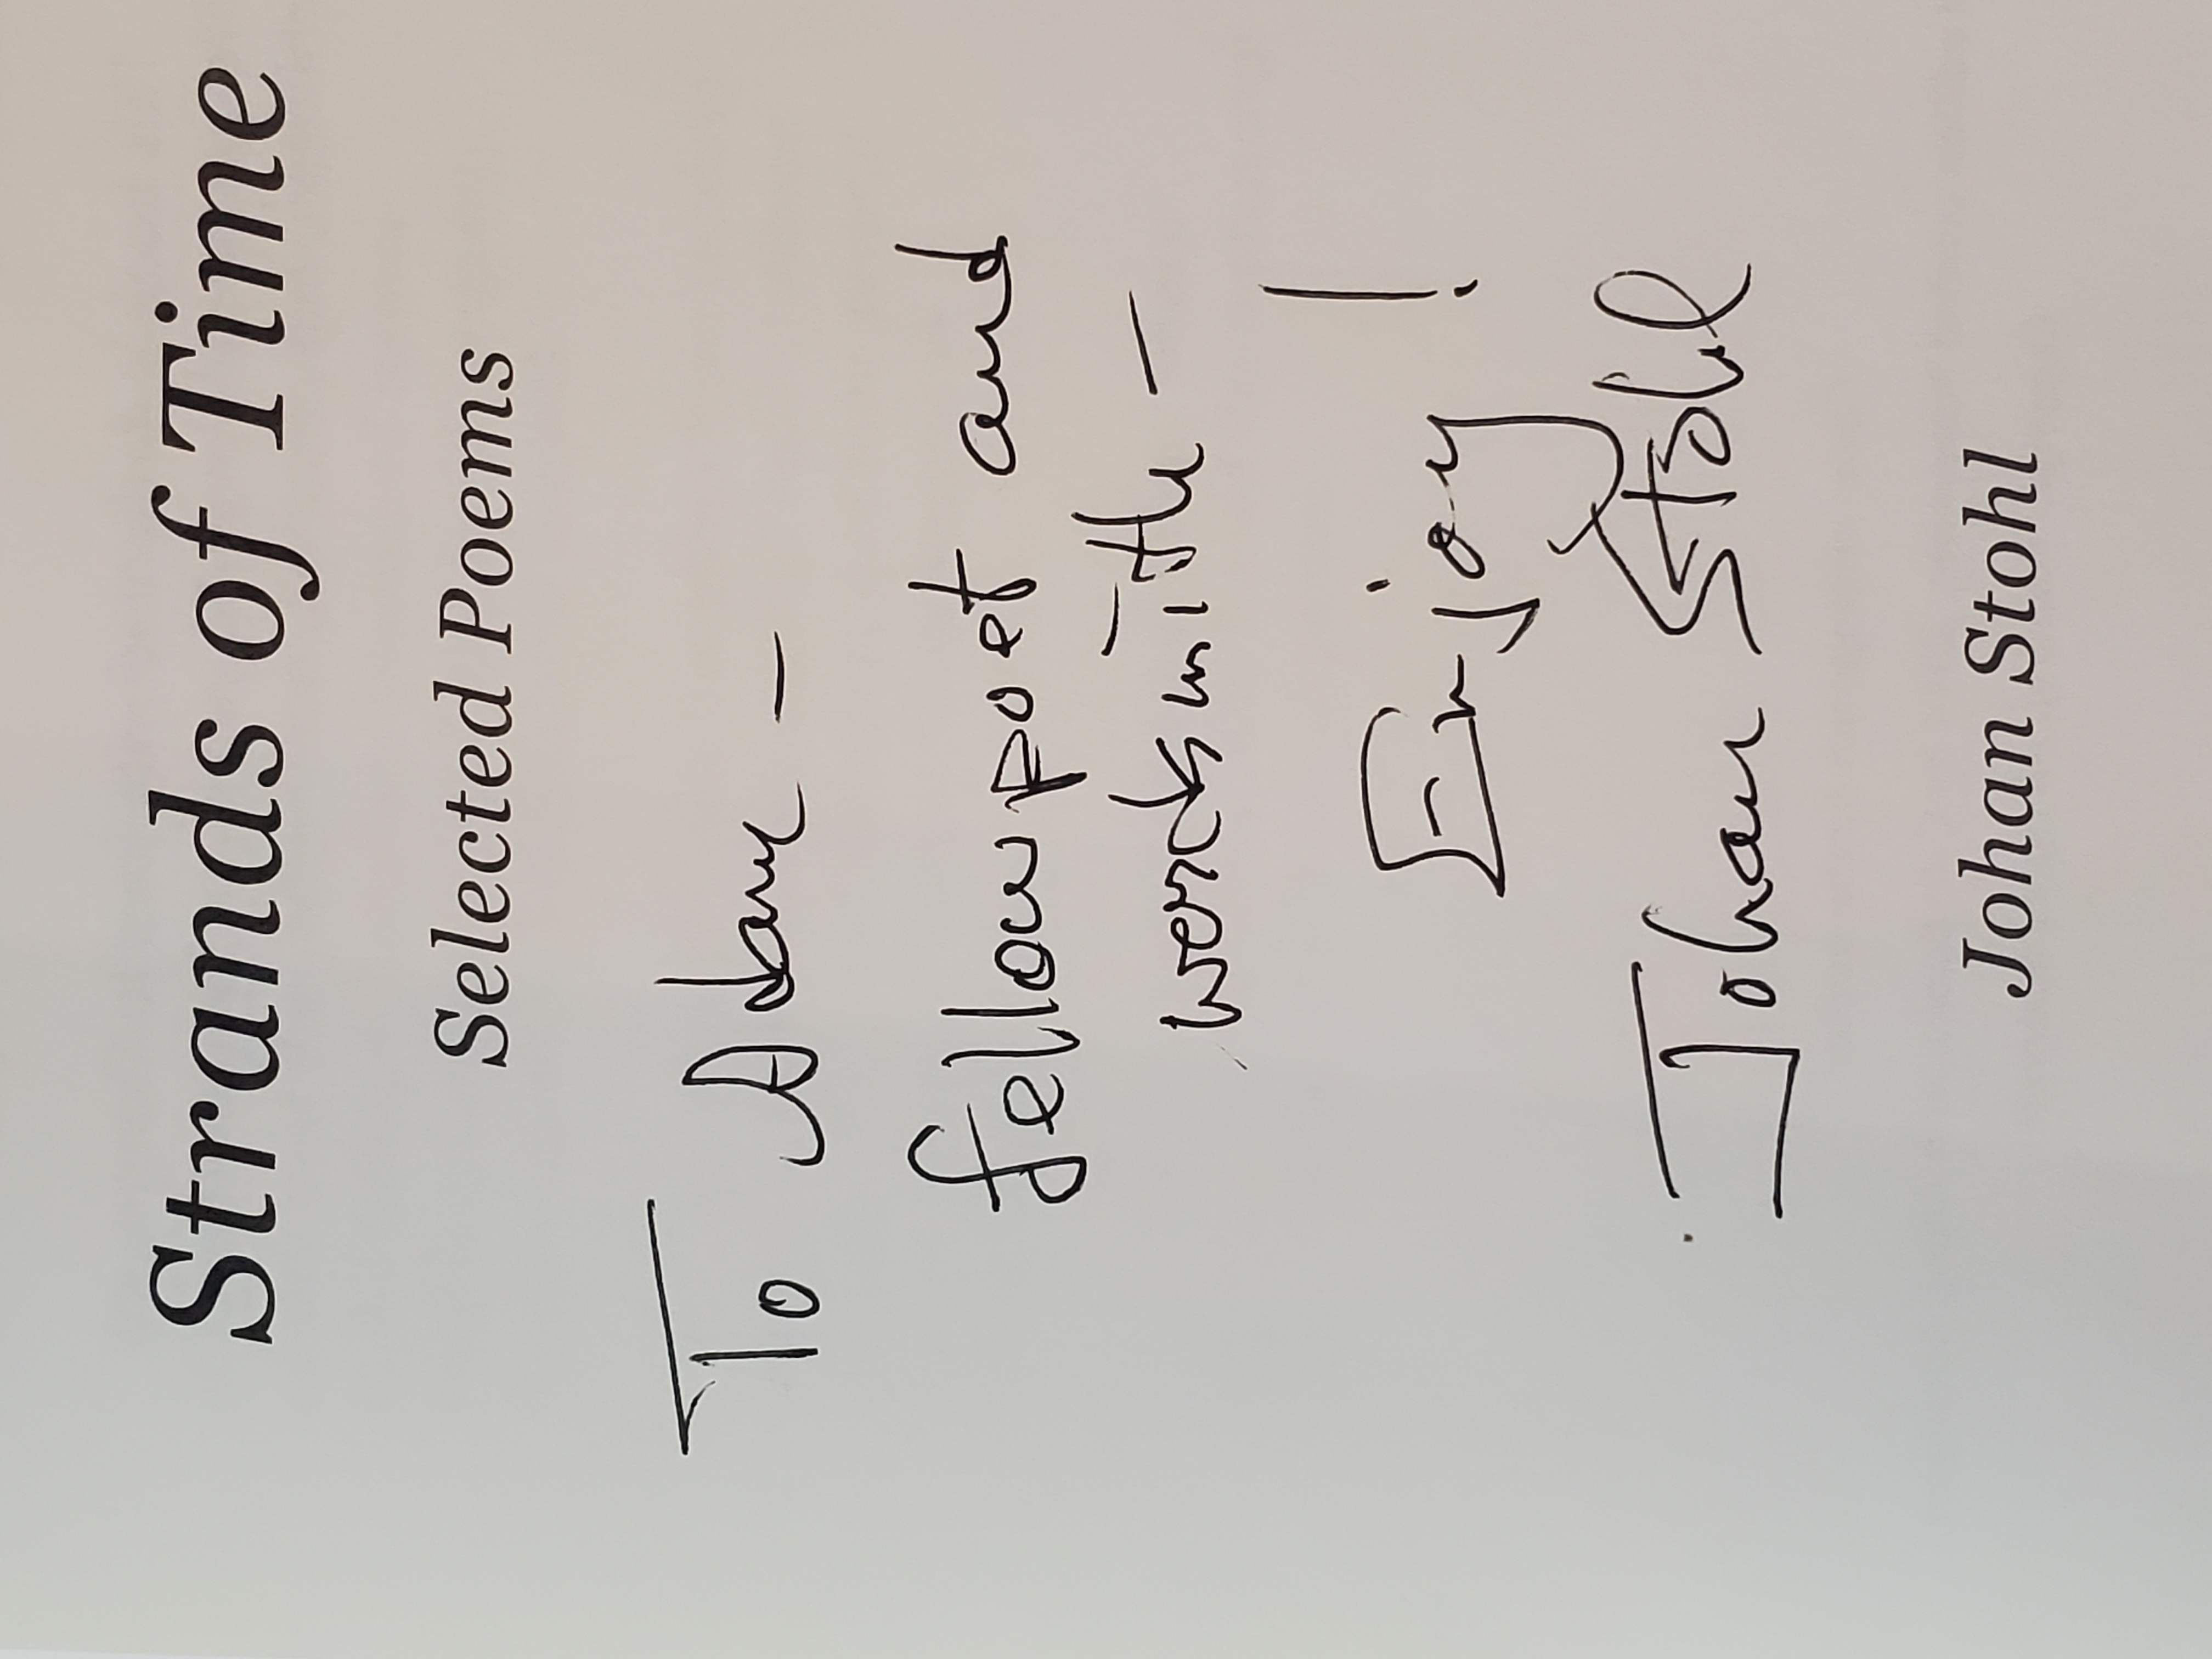 Strands of Time
Selected Poems
To Adam —
fellow poet and
wordsmith —
Enjoy!
Johan Stohl
Johan Stohl